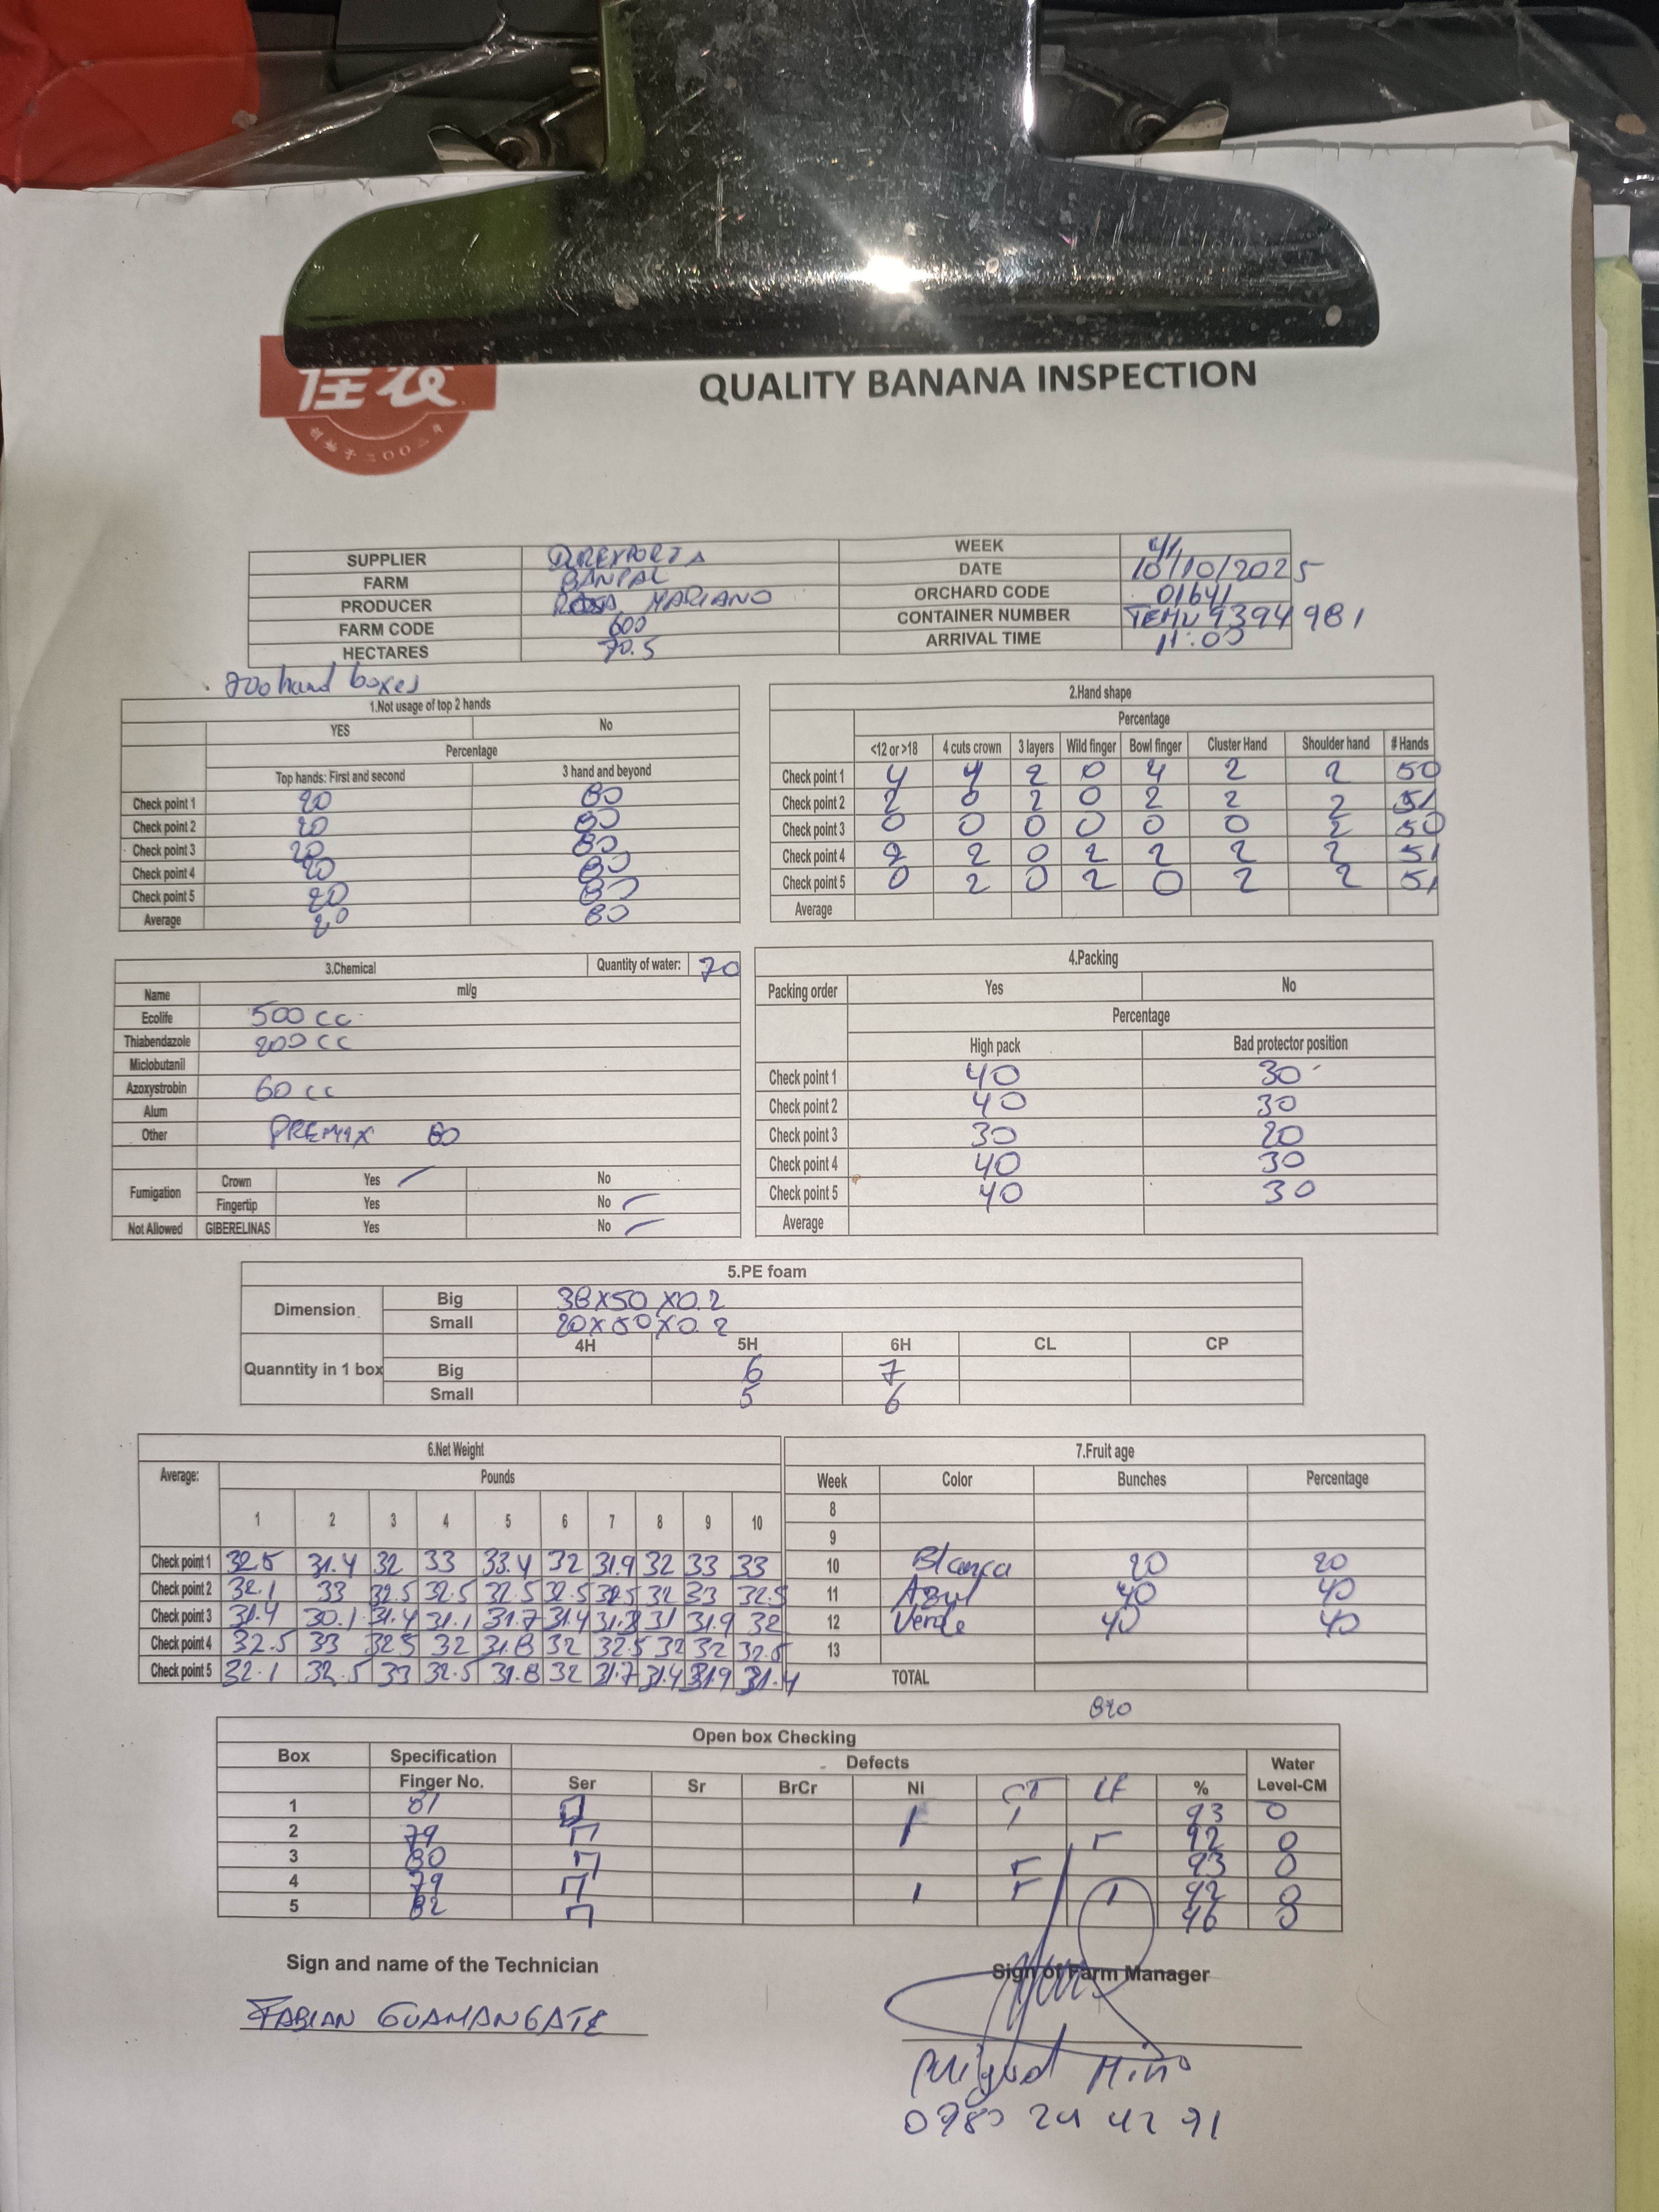 佳农
QUALITY BANANA INSPECTION
SUPPLIER DIREXPORTA WEEK 41
FARM BANPAL DATE 10/10/2025
PRODUCER ROSA MARIANO ORCHARD CODE 01641
FARM CODE 600 CONTAINER NUMBER TEMU 9394981
HECTARES 70.5 ARRIVAL TIME 11:00
hand boxes
1.Not usage of top 2 hands
YES No
Percentage
Top hands: First and second 3 hand and beyond
Check point 1 20 80
Check point 2 20 80
Check point 3 20 80
Check point 4 20 80
Check point 5 20 80
Average 20 80
2.Hand shape
Percentage
<12 or >18 4 cuts crown 3 layers Wild finger Bowl finger Cluster Hand Shoulder hand # Hands
Check point 1 4 4 2 0 4 2 2 50
Check point 2 2 0 2 0 2 2 2 51
Check point 3 0 0 0 0 0 0 2 50
Check point 4 2 2 0 2 2 2 2 51
Check point 5 0 2 0 2 0 2 2 51
Average
3.Chemical Quantity of water: 70
Name ml/g
Ecolife 500 cc
Thiabendazole 200 cc
Miclobutanil
Azoxystrobin 60 cc
Alum
Other PREMIX 80
Fumigation Crown Yes No
Fingertip Yes No
Not Allowed GIBERELINAS Yes No
4.Packing
Packing order Yes No
Percentage
High pack Bad protector position
Check point 1 40 30
Check point 2 40 30
Check point 3 30 20
Check point 4 40 30
Check point 5 40 30
Average
5.PE foam
Dimension Big 38X50X0.2
Small 20X50X0.2
4H 5H 6H CL CP
Quanntity in 1 box Big 6 7
Small 5 6
6.Net Weight
Average: Pounds
1 2 3 4 5 6 7 8 9 10
Check point 1 32.5 31.4 32 33 33.4 32 31.9 32 33 33
Check point 2 32.1 33 32.5 32.5 32.5 32.5 32.5 32 33 32.5
Check point 3 31.4 30.1 31.4 31.1 31.7 31.4 31.8 31 31.9 32
Check point 4 32.5 33 32.5 32 31.8 32 32.5 32 32 32.5
Check point 5 32.1 32.5 33 32.5 31.8 32 31.7 31.4 31.9 31.4
7.Fruit age
Week Color Bunches Percentage
8
9
10 Blanca 20 20
11 Azul 40 40
12 Verde 40 40
13
TOTAL
Open box Checking
Box Specification Defects Water
Finger No. Ser Sr BrCr NI CT LF % Level-CM
1 81 93 0
2 79 92 0
3 80 93 0
4 79 92 0
5 82 96 0
Sign and name of the Technician Sign of Farm Manager
FABIAN GUAMANGATE
Miño